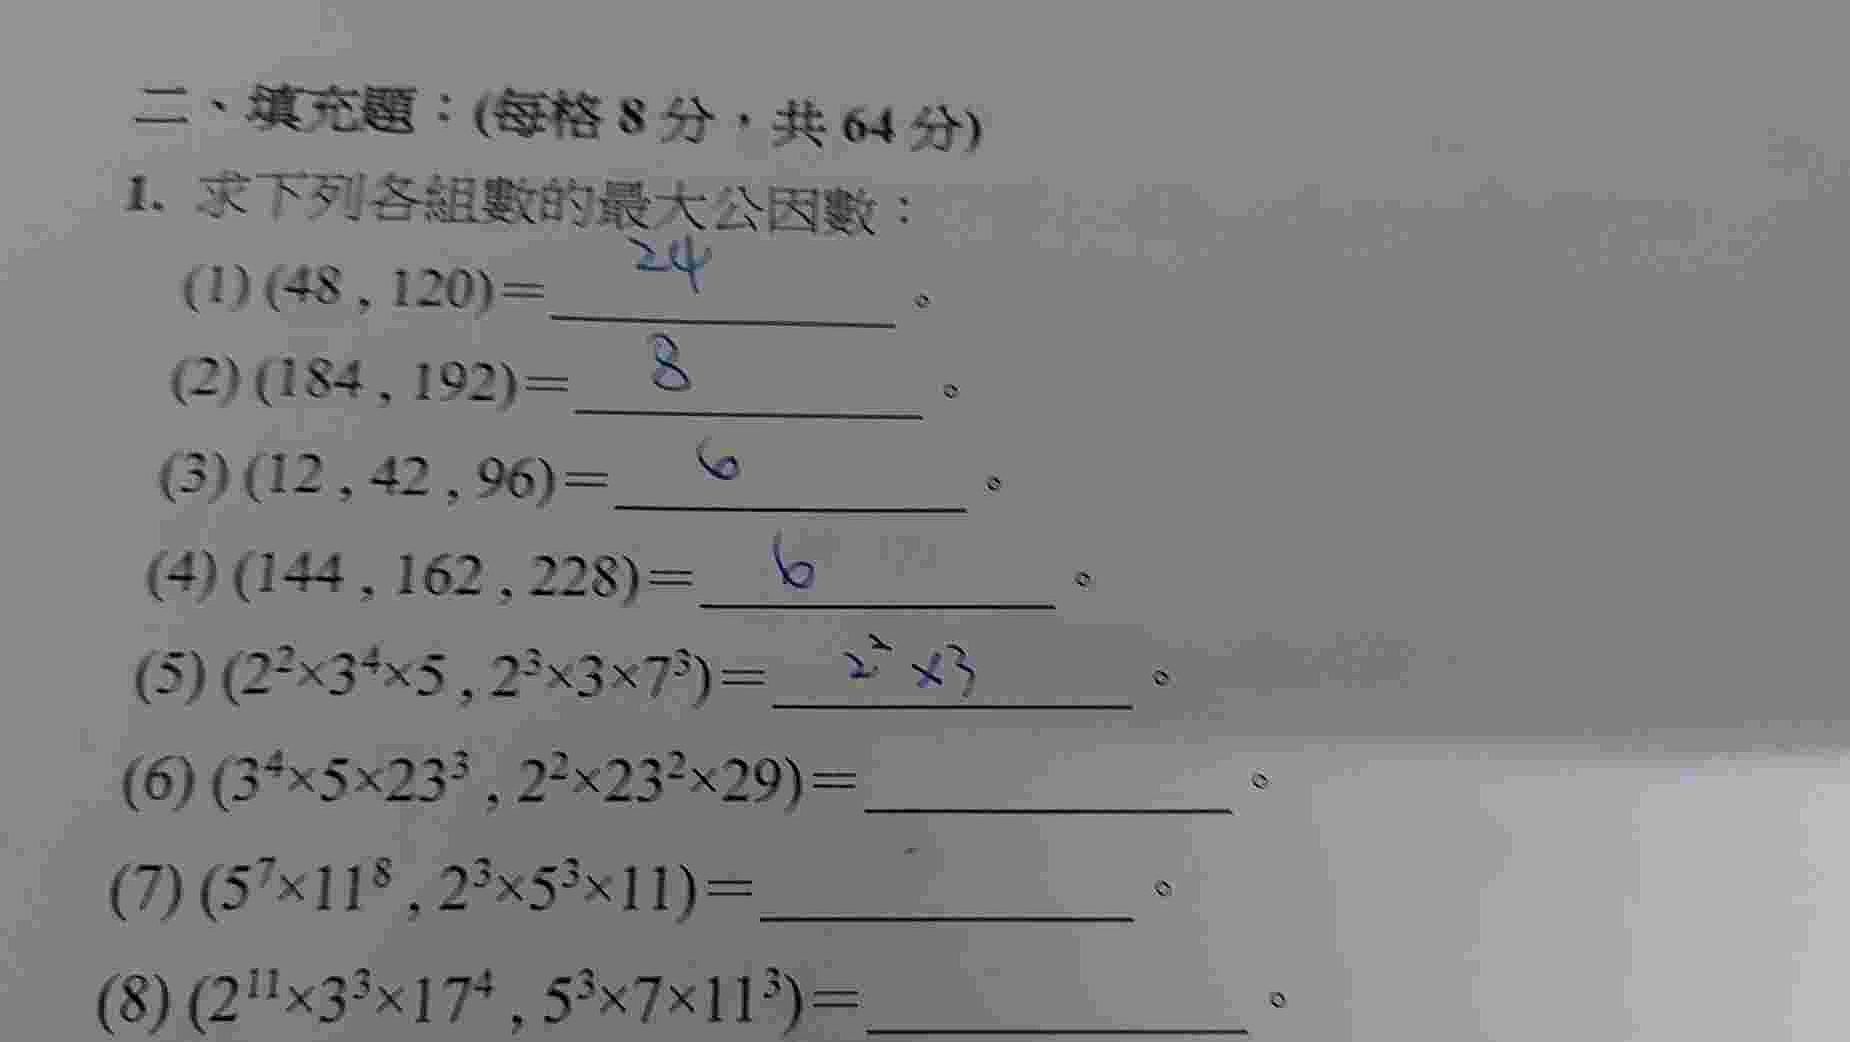 二、填充題：(每格 8 分，共 64 分)
1. 求下列各組數的最大公因數：
(1) (48 , 120)＝ 24 。
(2) (184 , 192)＝ 8 。
(3) (12 , 42 , 96)＝ 6 。
(4) (144 , 162 , 228)＝ 6 。
(5) (2²×3⁴×5 , 2³×3×7³)＝ 2²×3 。
(6) (3⁴×5×23³ , 2²×23²×29)＝ 。
(7) (5⁷×11⁸ , 2³×5³×11)＝ 。
(8) (2¹¹×3³×17⁴ , 5³×7×11³)＝ 。